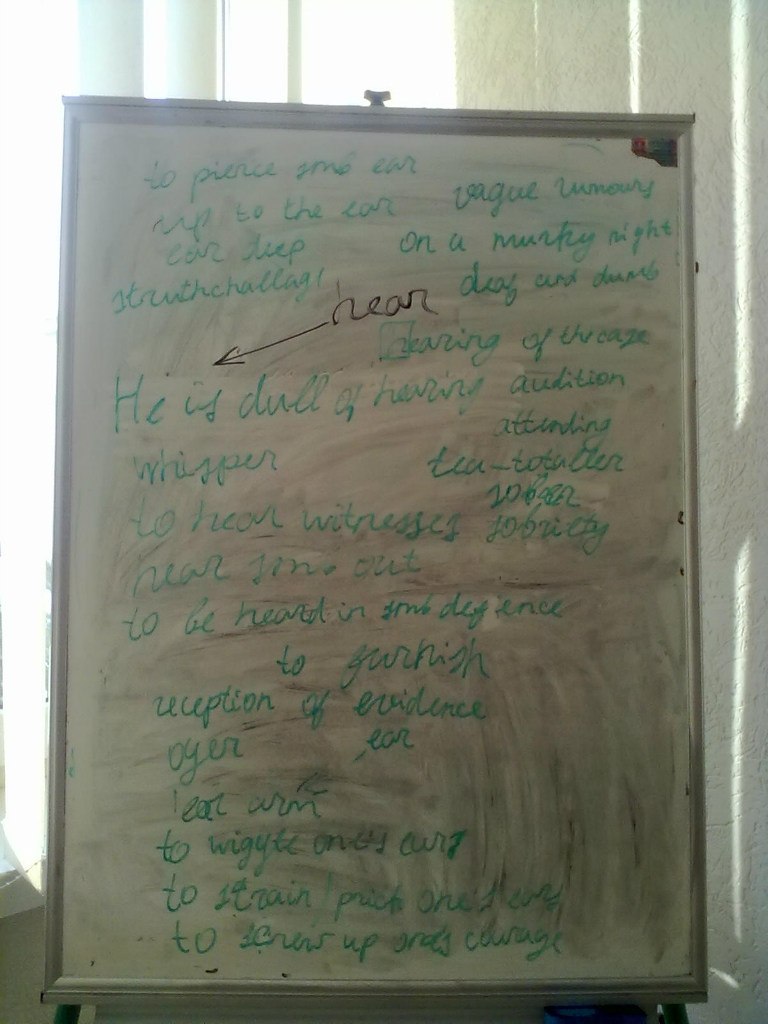 to pierce smb ear
up to the ear
vague rumours
ear deep
on a murky night
deaf and dumb
hear
hearing of the case
He is dull of hearing
audition
attending
whisper
tea-totaller
sober
to hear witnesses
sobriety
hear smb out
to be heard in smb defence
to furnish
reception of evidence
oyer
ear
to strain / prick one's ears
to screw up one's courage